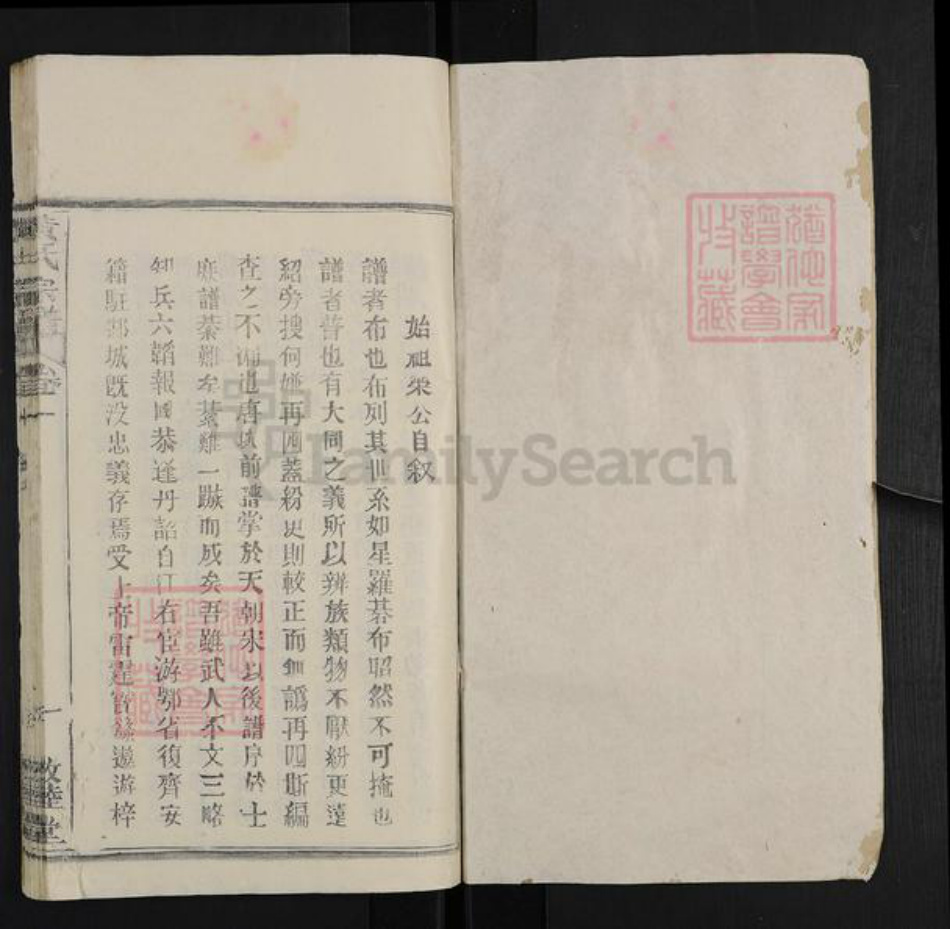 始祖榮公自叙
譜者布也布列其世系如星羅碁布昭然不可掩也
譜者普也有大同之義所以辨族類物不厭紛更遠
紹旁搜何嫌再四蓋紛更則較正而無譌再四斯編
查之不漏也唐以前譜掌於天朝宋以後譜序於士
庶譜綦難矣綦難一蹴而成矣吾雖武人不文三略
知兵六韜報國恭逢丹詔自江右宦游鄂省復齊安
籍駐邾城既没忠義存焉受上帝雷霆遨游梓
黃氏宗譜
卷一
一
敦睦堂
譜學會
收藏
FamilySearch